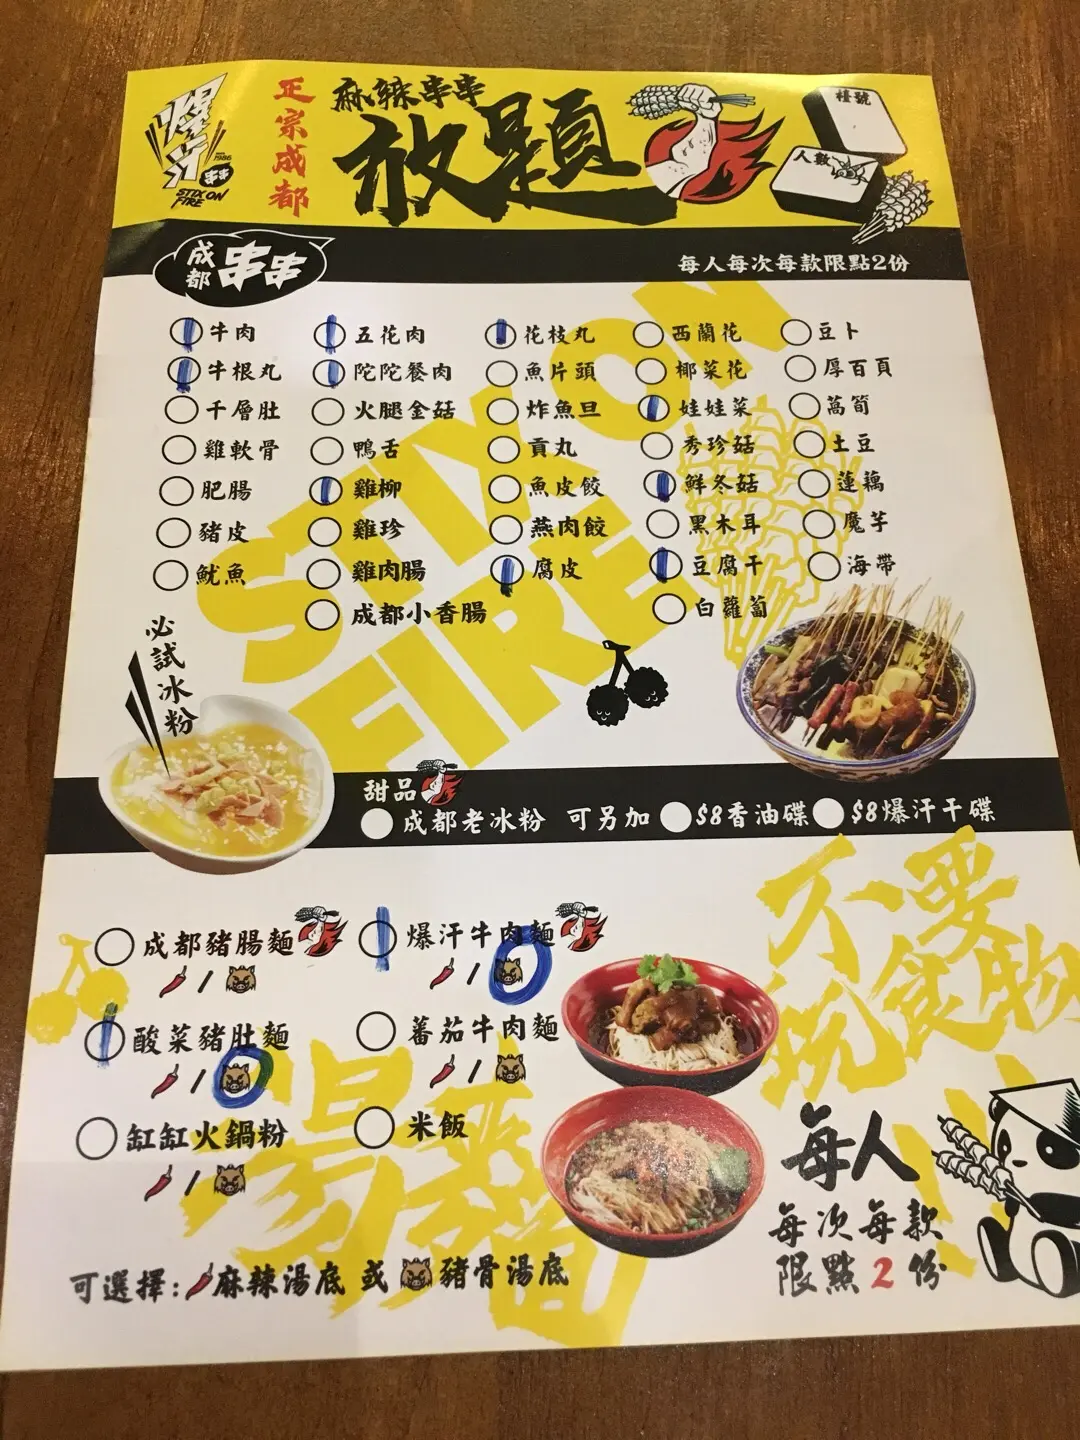 爆汗
SINCE 1986
串串
STIX ON FIRE
正宗成都
麻辣串串
放題
檯號
人數
成都串串
每人每次每款限點2份
牛肉 五花肉 花枝丸 西蘭花 豆卜
牛根丸 陀陀餐肉 魚片頭 椰菜花 厚百頁
千層肚 火腿金菇 炸魚旦 娃娃菜 萵筍
雞軟骨 鴨舌 貢丸 秀珍菇 土豆
肥腸 雞柳 魚皮餃 鮮冬菇 蓮藕
豬皮 雞珍 燕肉餃 黑木耳 魔芋
魷魚 雞肉腸 腐皮 豆腐干 海帶
成都小香腸 白蘿蔔
STIX ON
FIRE
必試冰粉
甜品
成都老冰粉 可另加 $8香油碟 $8爆汗干碟
不要
玩食物
成都豬腸麵 爆汗牛肉麵
/ /
酸菜豬肚麵 蕃茄牛肉麵
/ /
缸缸火鍋粉 米飯
/
湯麵
可選擇: 麻辣湯底 或 豬骨湯底
每人
每次每款
限點2份